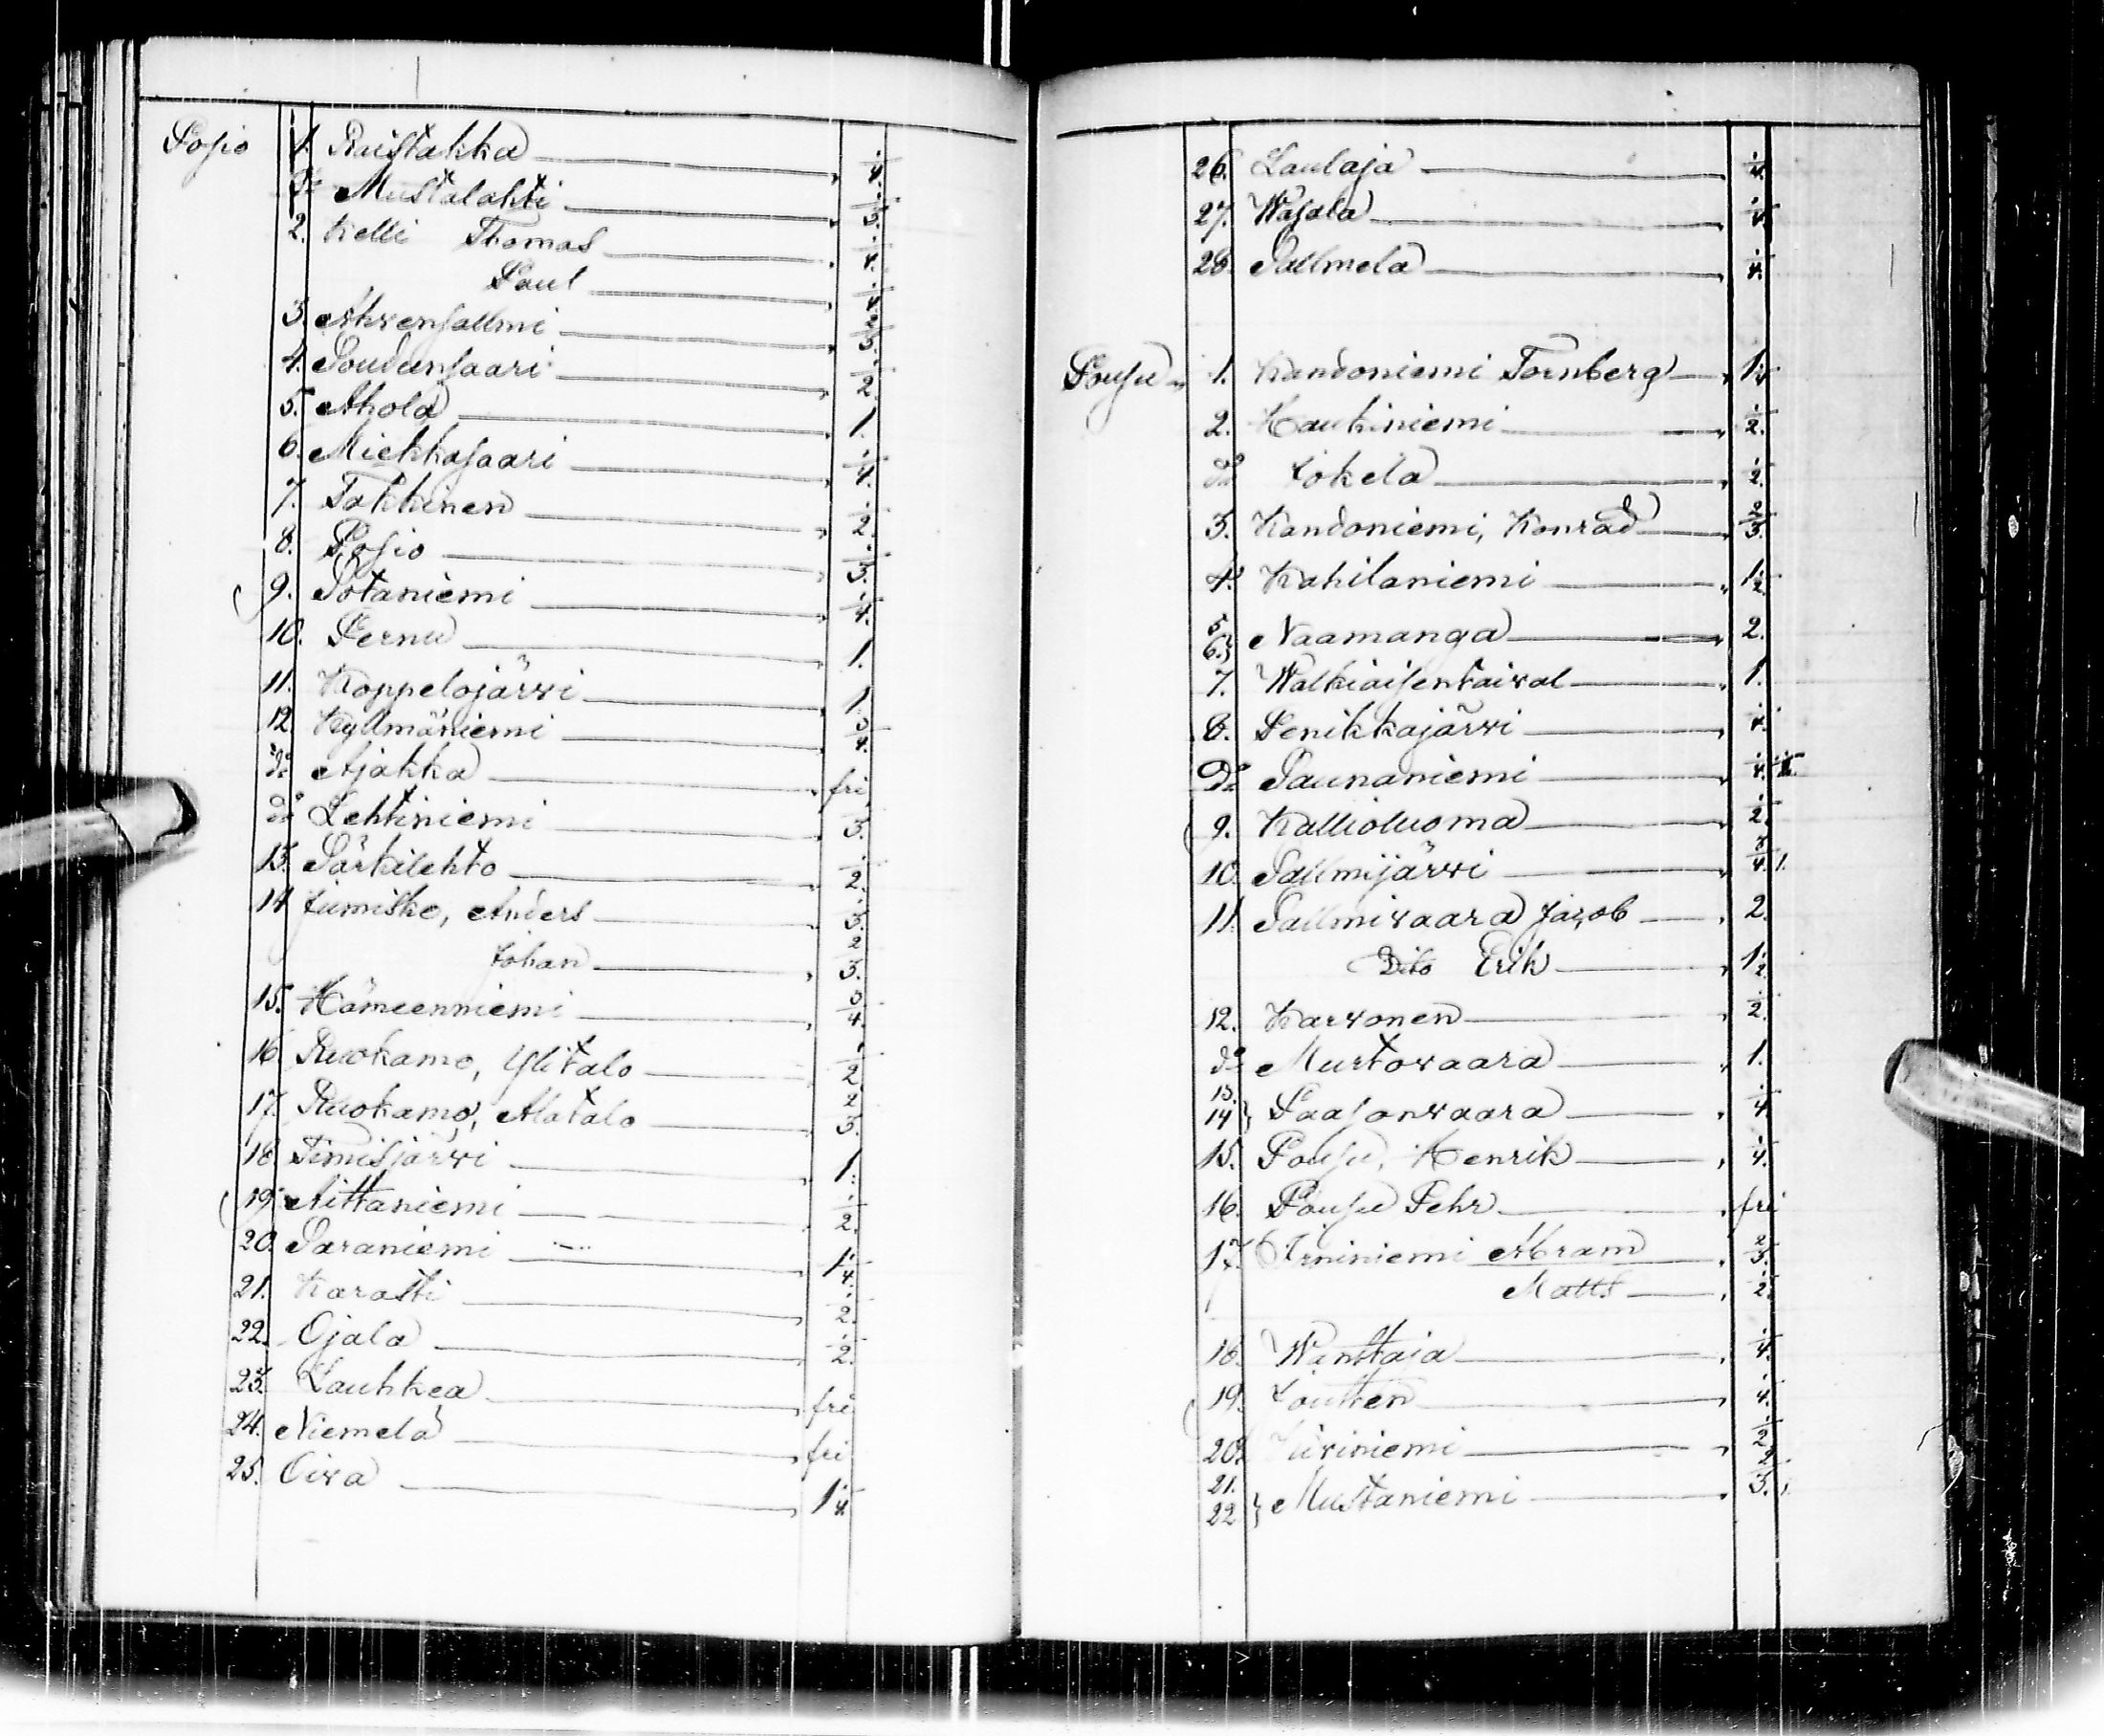 Posio 1. Raistakka 1/4.
do Mustalahti 1/3.
2. Kelli Thomas 1/4.
Paul 1/4.
3. Ahvensallmi 2/3.
4. Soudunsaari 1/2.
5. Ahola 1.
6. Miekkasaari 1/4.
7. Takkinen 1/2.
8. Posio 1/3.
9. Sotaniemi 1/4.
10. Pernu 1.
11. Koppelojärwi 1.
12 Kyllmäniemi 3/4.
do Ajakka fri
do Lehtiniemi 1/3.
13. Särkilehto 1/2.
14 Jumisko, Anders 1/3.
Johan 2/3.
15. Hämeenniemi 3/4.
16 Ruokamo, Ylitalo 1/2.
17. Ruokamo, Alatalo 2/3.
18 Timisjärwi 1.
19. Aittaniemi 1/2.
20. Saraniemi 1 1/4.
21. Karasti 1/2.
22. Ojala 1/2.
23. Lauhkea fri
24. Niemelä fri
25. Oiva 1 1/4
26. Laulaja 1/4.
27. Wasala 1/4.
28. Sallmela 1/4.
Pousu 1. Kandoniemi Tornberg 1 1/4
2. Haukiniemi 1/2.
do Jokela 1/2.
3. Kandoniemi, Konrad 2/3.
4. Kahilaniemi 1 1/2.
5. 6. } Naamanga 2.
7. Walkiaisentaival 1.
8. Penikkajärwi 1/4.
Do Saunaniemi 1/4.
9. Kallioluoma 1/2.
10. Sallmijärwi 3/4. 1.
11. Sallmivaara Jacob 2.
Dito Erik 1 1/2.
12. Karvonen 1/2.
do Murtovaara 1.
13. 14 } Paasonvaara 1/4.
15. Pousu, Henrik 1/4.
16. Pousu Pehr fri
17. Irniniemi Abram 2/3.
Matts 1/2.
18. Wanttaja 1/4.
19. Joutten 1/4.
20. Kiviniemi 1/2.
21. 22 } Mustaniemi 2/3.